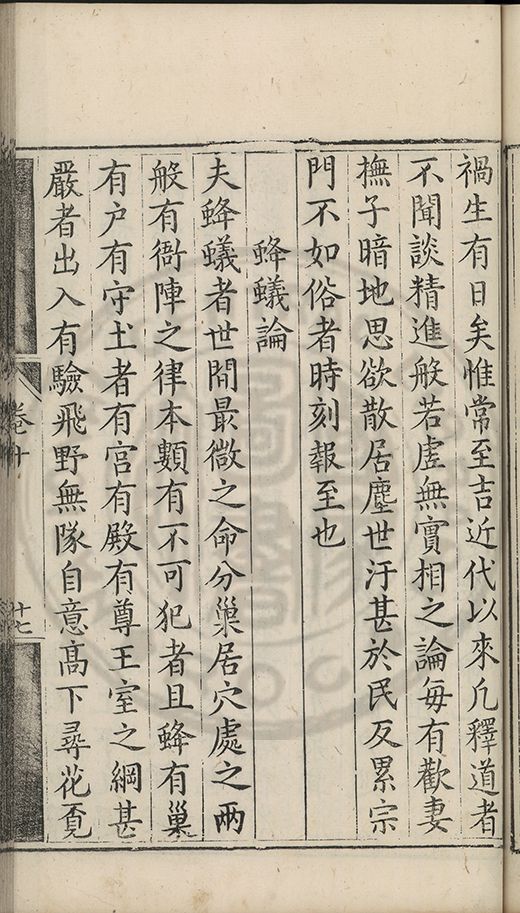 禍生有日矣惟常至吉近代以來凢釋道者
不聞談精進般若虗無實相之論每有歡妻
撫子暗地思欲散居塵世汙甚於民反累宗
門不如俗者時刻報至也
蜂蟻論
夫蜂蟻者世間最微之命分巢居穴處之兩
般有衙陣之律本數有不可犯者且蜂有巢
有户有守土者有宫有殿有尊王室之綱甚
嚴者出入有驗飛野無隊自意髙下尋花覔
卷十
十七